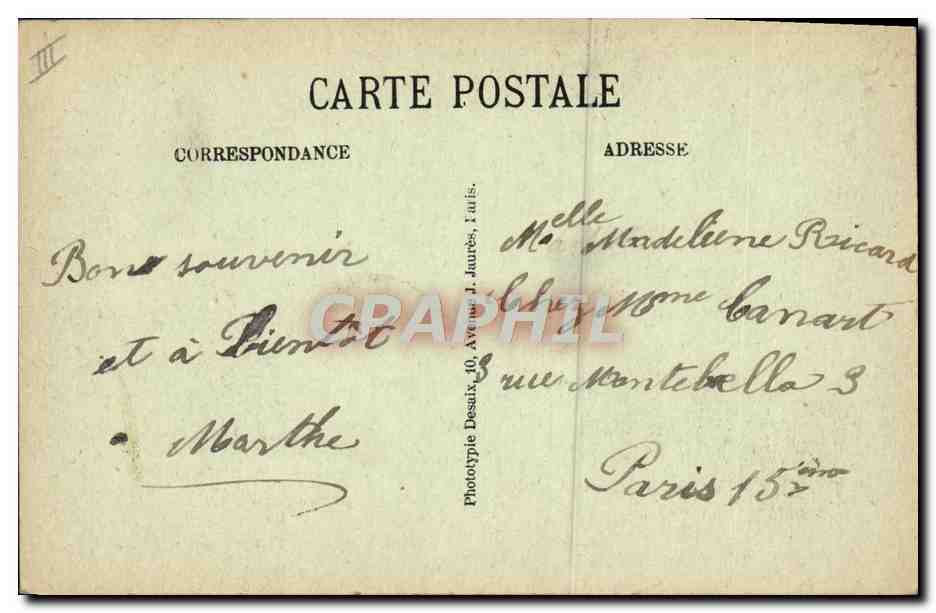 III
CARTE POSTALE
CORRESPONDANCE
ADRESSE
Bon souvenir
et à Bientôt
Marthe
Phototypie Desaix, 10, Avenue J. Jaurès, Paris.
Melle Madeleine Ricard
Chez Mme Canart
3 rue Montebello 3
Paris 15ème
CRAPHIL